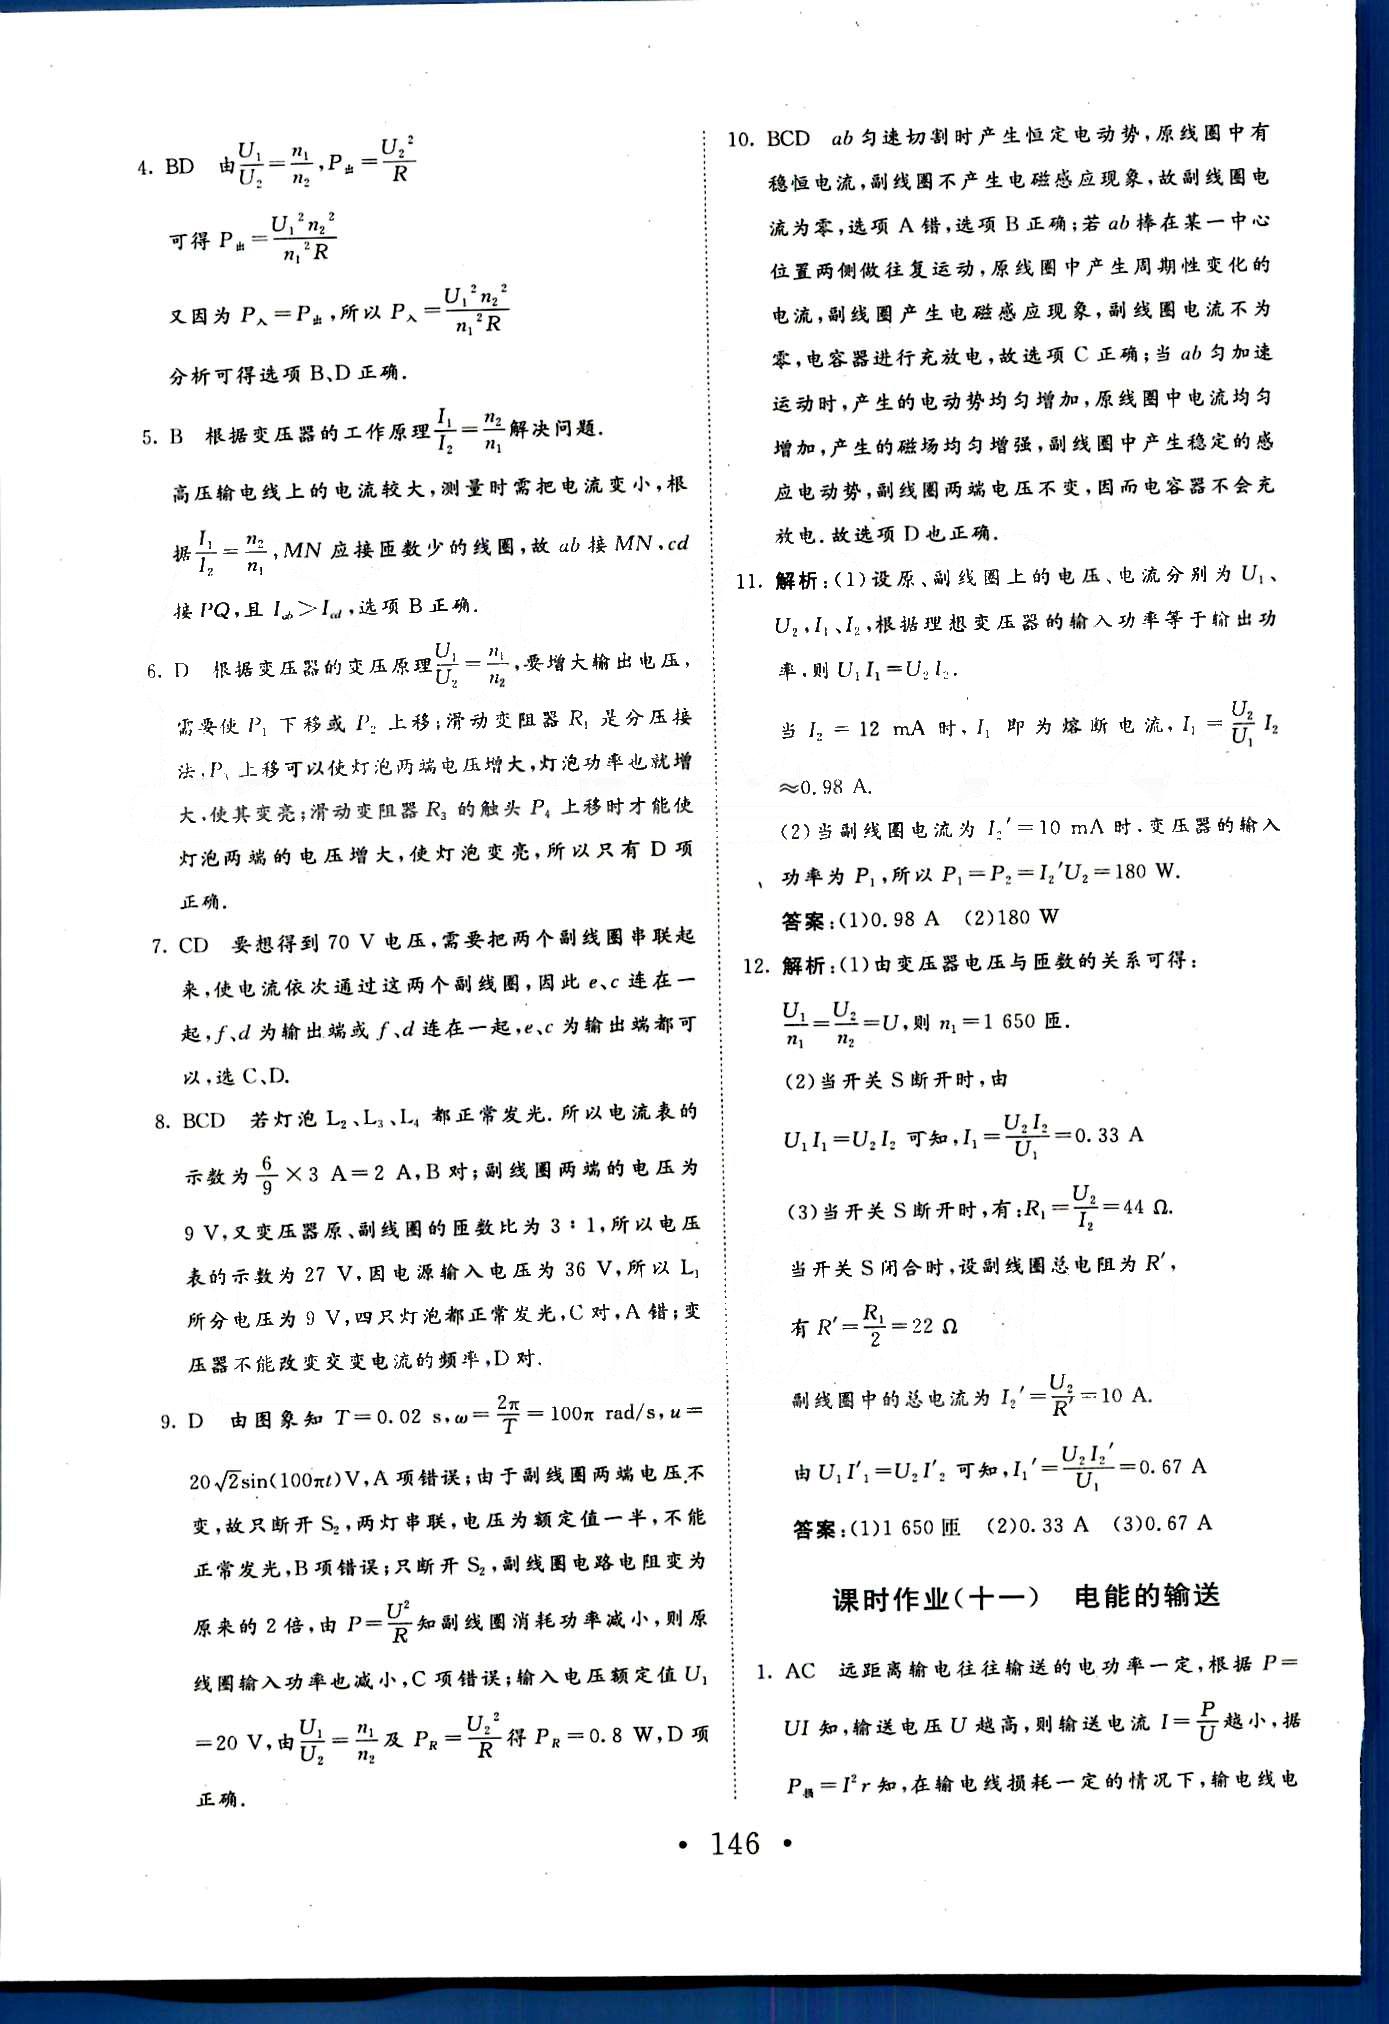 4. BD 由U₁/U₂=n₁/n₂,P出=U₂²/R
可得 P出=U₁²n₂²/n₁²R
又因为 P入=P出,所以 P入=U₁²n₂²/n₁²R
分析可得选项 B、D 正确.
5. B 根据变压器的工作原理I₁/I₂=n₂/n₁解决问题.
高压输电线上的电流较大,测量时需把电流变小,根
据I₁/I₂=n₂/n₁,MN 应接匝数少的线圈,故 ab 接 MN,cd
接 PQ,且 Iab>Icd,选项 B 正确.
6. D 根据变压器的变压原理U₁/U₂=n₁/n₂,要增大输出电压,
需要使 P₁ 下移或 P₂ 上移;滑动变阻器 R₁ 是分压接
法,P₃ 上移可以使灯泡两端电压增大,灯泡功率也就增
大,使其变亮;滑动变阻器 R₃ 的触头 P₄ 上移时才能使
灯泡两端的电压增大,使灯泡变亮,所以只有 D 项
正确.
7. CD 要想得到 70 V 电压,需要把两个副线圈串联起
来,使电流依次通过这两个副线圈,因此 e、c 连在一
起,f、d 为输出端或 f、d 连在一起,e、c 为输出端都可
以,选 C、D.
8. BCD 若灯泡 L₂、L₃、L₄ 都正常发光.所以电流表的
示数为6/9×3 A=2 A,B 对;副线圈两端的电压为
9 V,又变压器原、副线圈的匝数比为 3∶1,所以电压
表的示数为 27 V,因电源输入电压为 36 V,所以 L₁
所分电压为 9 V,四只灯泡都正常发光,C 对,A 错;变
压器不能改变交变电流的频率,D 对.
9. D 由图象知 T=0.02 s,ω=2π/T=100π rad/s,u=
20√2sin(100πt)V,A 项错误;由于副线圈两端电压不
变,故只断开 S₂,两灯串联,电压为额定值一半,不能
正常发光,B 项错误;只断开 S₂,副线圈电路电阻变为
原来的 2 倍,由 P=U²/R知副线圈消耗功率减小,则原
线圈输入功率也减小,C 项错误;输入电压额定值 U₁
=20 V,由U₁/U₂=n₁/n₂及 PR=U₂²/R得 PR=0.8 W,D 项
正确.
10. BCD ab 匀速切割时产生恒定电动势,原线圈中有
稳恒电流,副线圈不产生电磁感应现象,故副线圈电
流为零,选项 A 错,选项 B 正确;若 ab 棒在某一中心
位置两侧做往复运动,原线圈中产生周期性变化的
电流,副线圈产生电磁感应现象,副线圈电流不为
零,电容器进行充放电,故选项 C 正确;当 ab 匀加速
运动时,产生的电动势均匀增加,原线圈中电流均匀
增加,产生的磁场均匀增强,副线圈中产生稳定的感
应电动势,副线圈两端电压不变,因而电容器不会充
放电.故选项 D 也正确.
11. 解析:(1)设原、副线圈上的电压、电流分别为 U₁、
U₂,I₁、I₂,根据理想变压器的输入功率等于输出功
率,则 U₁I₁=U₂I₂.
当 I₂=12 mA 时,I₁ 即为熔断电流,I₁=U₂/U₁ I₂
≈0.98 A.
(2)当副线圈电流为 I₂′=10 mA 时,变压器的输入
功率为 P₁,所以 P₁=P₂=I₂′U₂=180 W.
答案:(1)0.98 A (2)180 W
12. 解析:(1)由变压器电压与匝数的关系可得:
U₁/n₁=U₂/n₂=U,则 n₁=1 650 匝.
(2)当开关 S 断开时,由
U₁I₁=U₂I₂ 可知,I₁=U₂I₂/U₁=0.33 A
(3)当开关 S 断开时,有:R₁=U₂/I₂=44 Ω.
当开关 S 闭合时,设副线圈总电阻为 R′,
有 R′=R₁/2=22 Ω
副线圈中的总电流为 I₂′=U₂/R′=10 A.
由 U₁I′₁=U₂I′₂ 可知,I₁′=U₂I₂′/U₁=0.67 A
答案:(1)1 650 匝 (2)0.33 A (3)0.67 A
课时作业(十一) 电能的输送
1. AC 远距离输电往往输送的电功率一定,根据 P=
UI 知,输送电压 U 越高,则输送电流 I=P/U越小,据
P损=I²r 知,在输电线损耗一定的情况下,输电线电
• 146 •